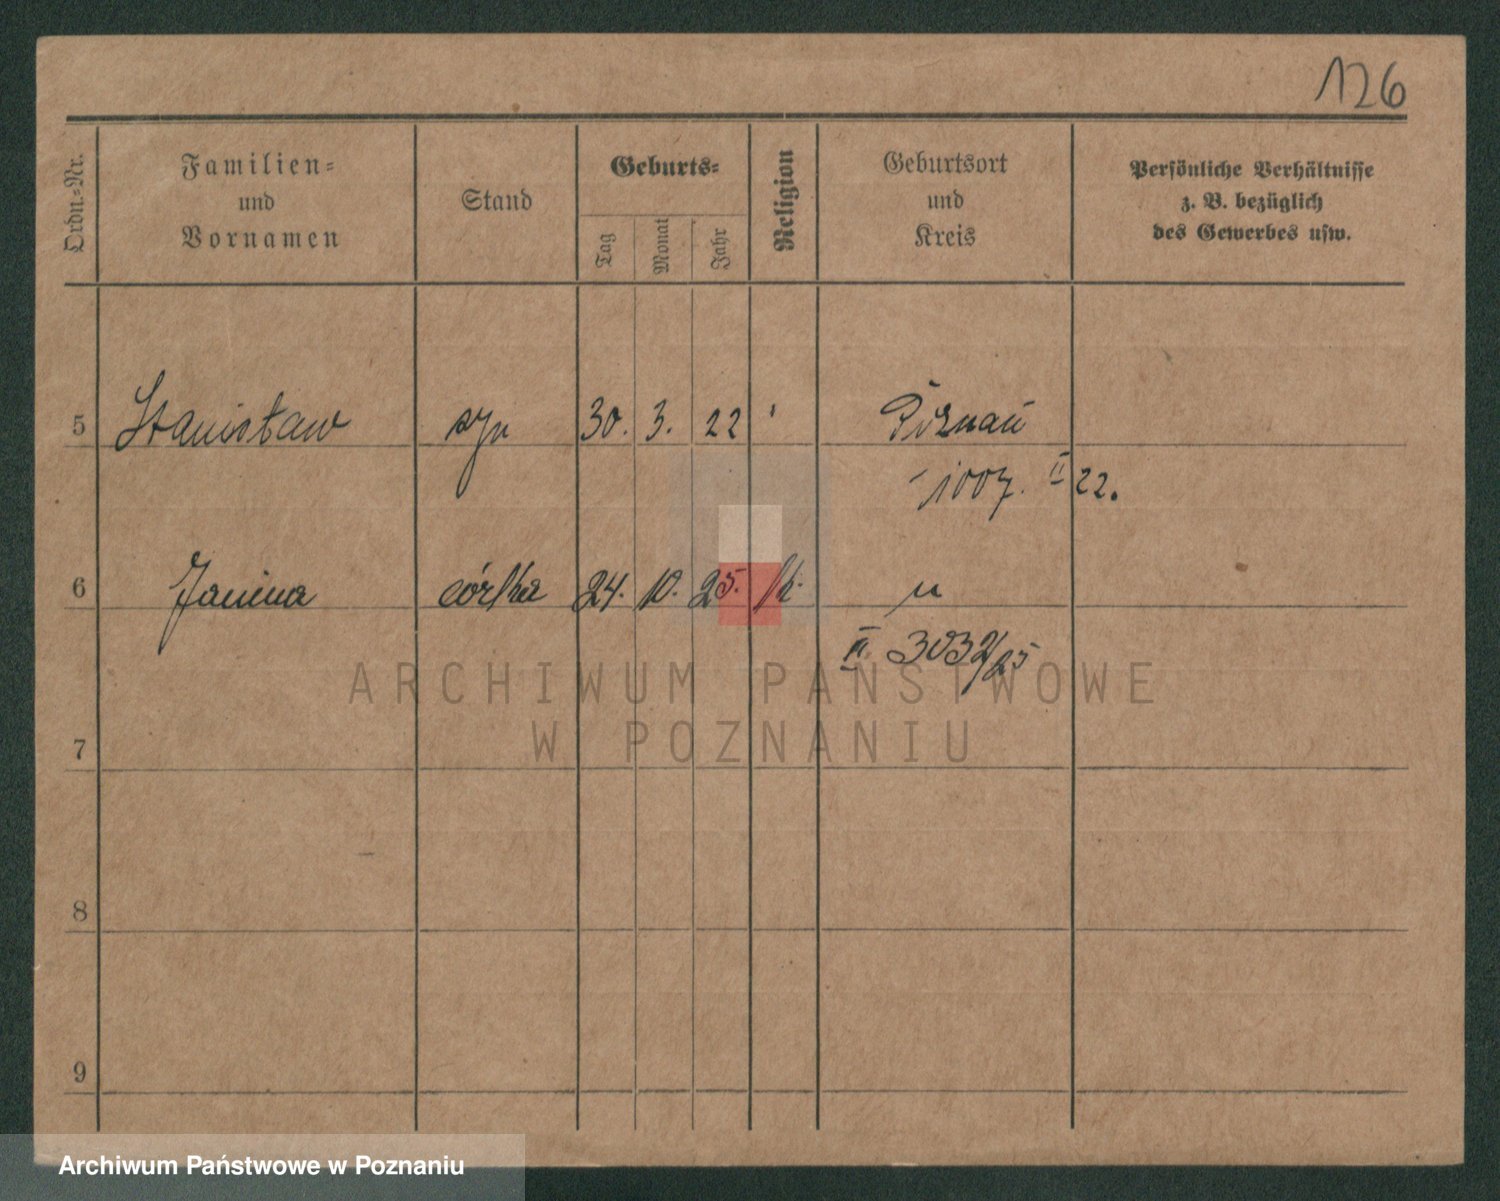 126
Ordn.=Nr.
Familien=
und
Vornamen
Stand
Geburts=
Tag
Monat
Jahr
Religion
Geburtsort
und
Kreis
Persönliche Verhältnisse
z. B. bezüglich
des Gewerbes usw.
5 Stanisław syn 30. 3. 22 Poznań
1007. II 22.
6 Janina córka 24. 10. 25. k. "
II 3032/25
7
8
9
ARCHIWUM PAŃSTWOWE
W POZNANIU
Archiwum Państwowe w Poznaniu